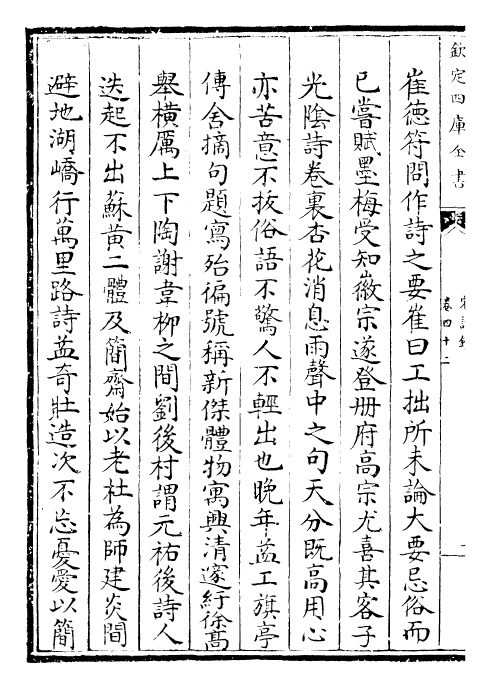 欽定四庫全書
宋詩鈔
卷四十二
崔德符問作詩之要崔曰工拙所未論大要忌俗而
已嘗賦墨梅受知徽宗遂登册府高宗尤喜其客子
光陰詩卷裏杏花消息雨聲中之句天分既高用心
亦苦意不拔俗語不驚人不輕出也晚年益工旗亭
傳舍摘句題寫殆徧號稱新傑體物寓興清邃紆徐高
舉橫厲上下陶謝韋柳之間劉後村謂元祐後詩人
迭起不出蘇黃二體及簡齋始以老杜為師建炎間
避地湖嶠行萬里路詩益竒壯造次不忘憂愛以簡